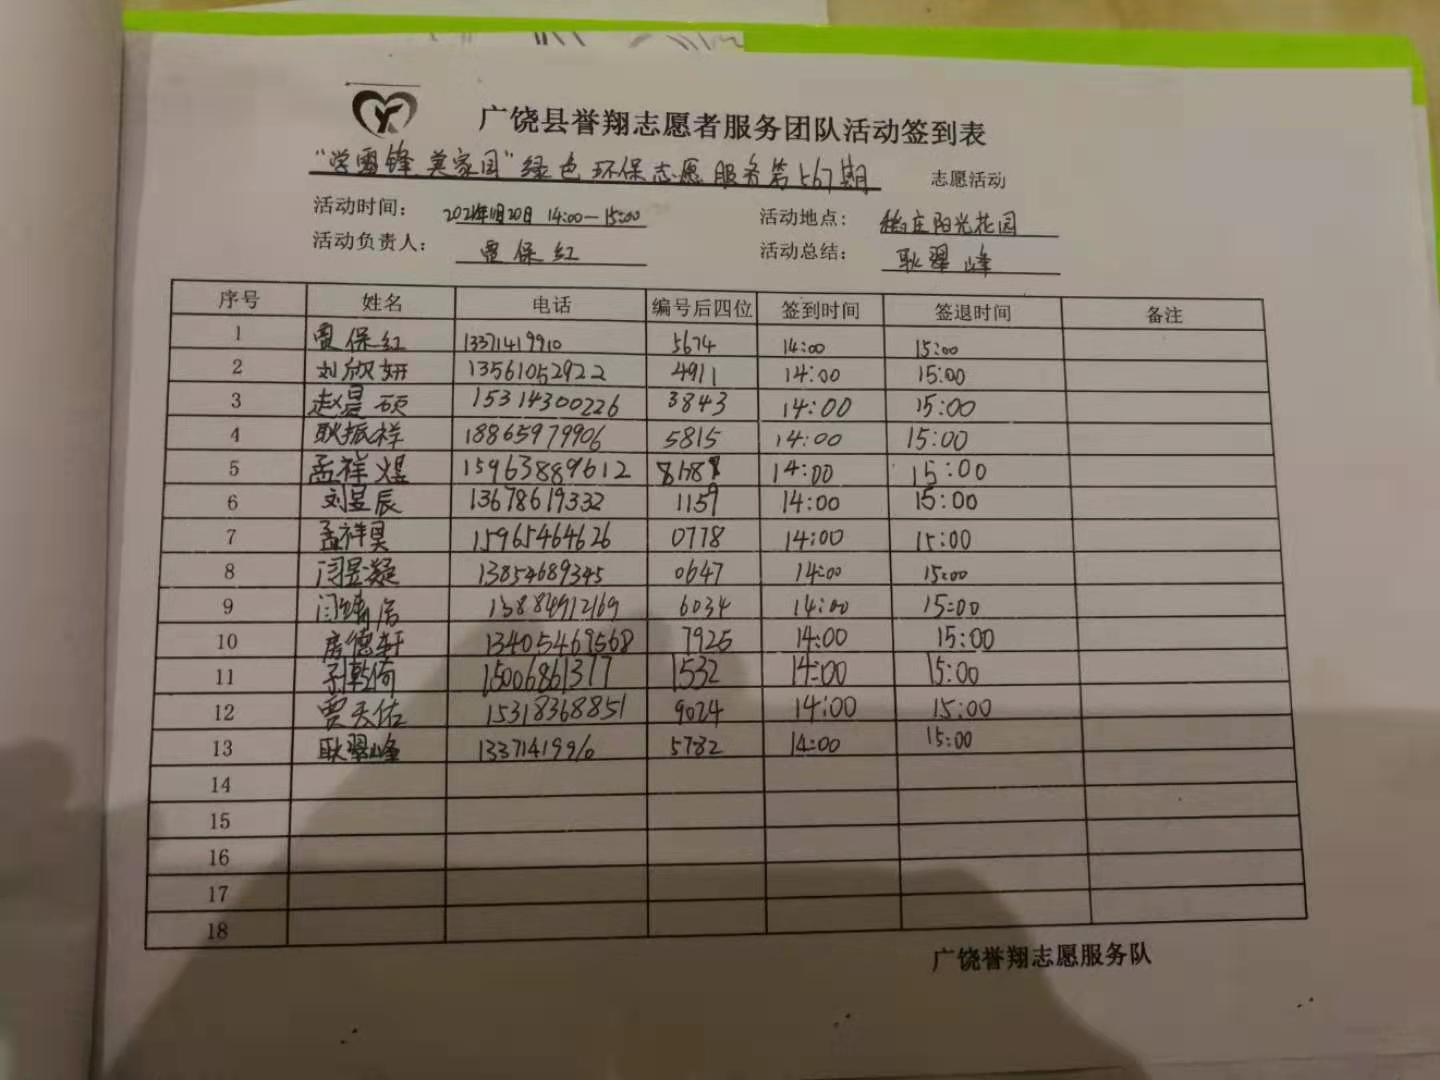 广饶县誉翔志愿者服务团队活动签到表
"学雷锋 美家园"绿色环保志愿服务第567期 志愿活动
活动时间: 14:00—15:00 活动地点: 阳光花园
活动负责人: 贾保红 活动总结: 耿翠峰
序号 姓名 电话 编号后四位 签到时间 签退时间 备注
1 贾保红 13371419910 5674 14:00 15:00
2 刘欣妍 13561052922 4911 14:00 15:00
3 赵昊硕 15314300226 3843 14:00 15:00
4 耿振祥 18865979906 5815 14:00 15:00
5 孟祥煜 15963889612 14:00 15:00
6 刘昱辰 13678619332 1159 14:00 15:00
7 孟祥昊 15965464626 0778 14:00 15:00
8 闫昱凝 13854689345 0647 14:00 15:00
9 13884912169 6034 14:00 15:00
10 房德轩 13405469568 7925 14:00 15:00
11 15006861377 1532 14:00 15:00
12 贾天佑 15318368851 9024 14:00 15:00
13 耿翠峰 13371419996 5782 14:00 15:00
14
15
16
17
18
广饶誉翔志愿服务队